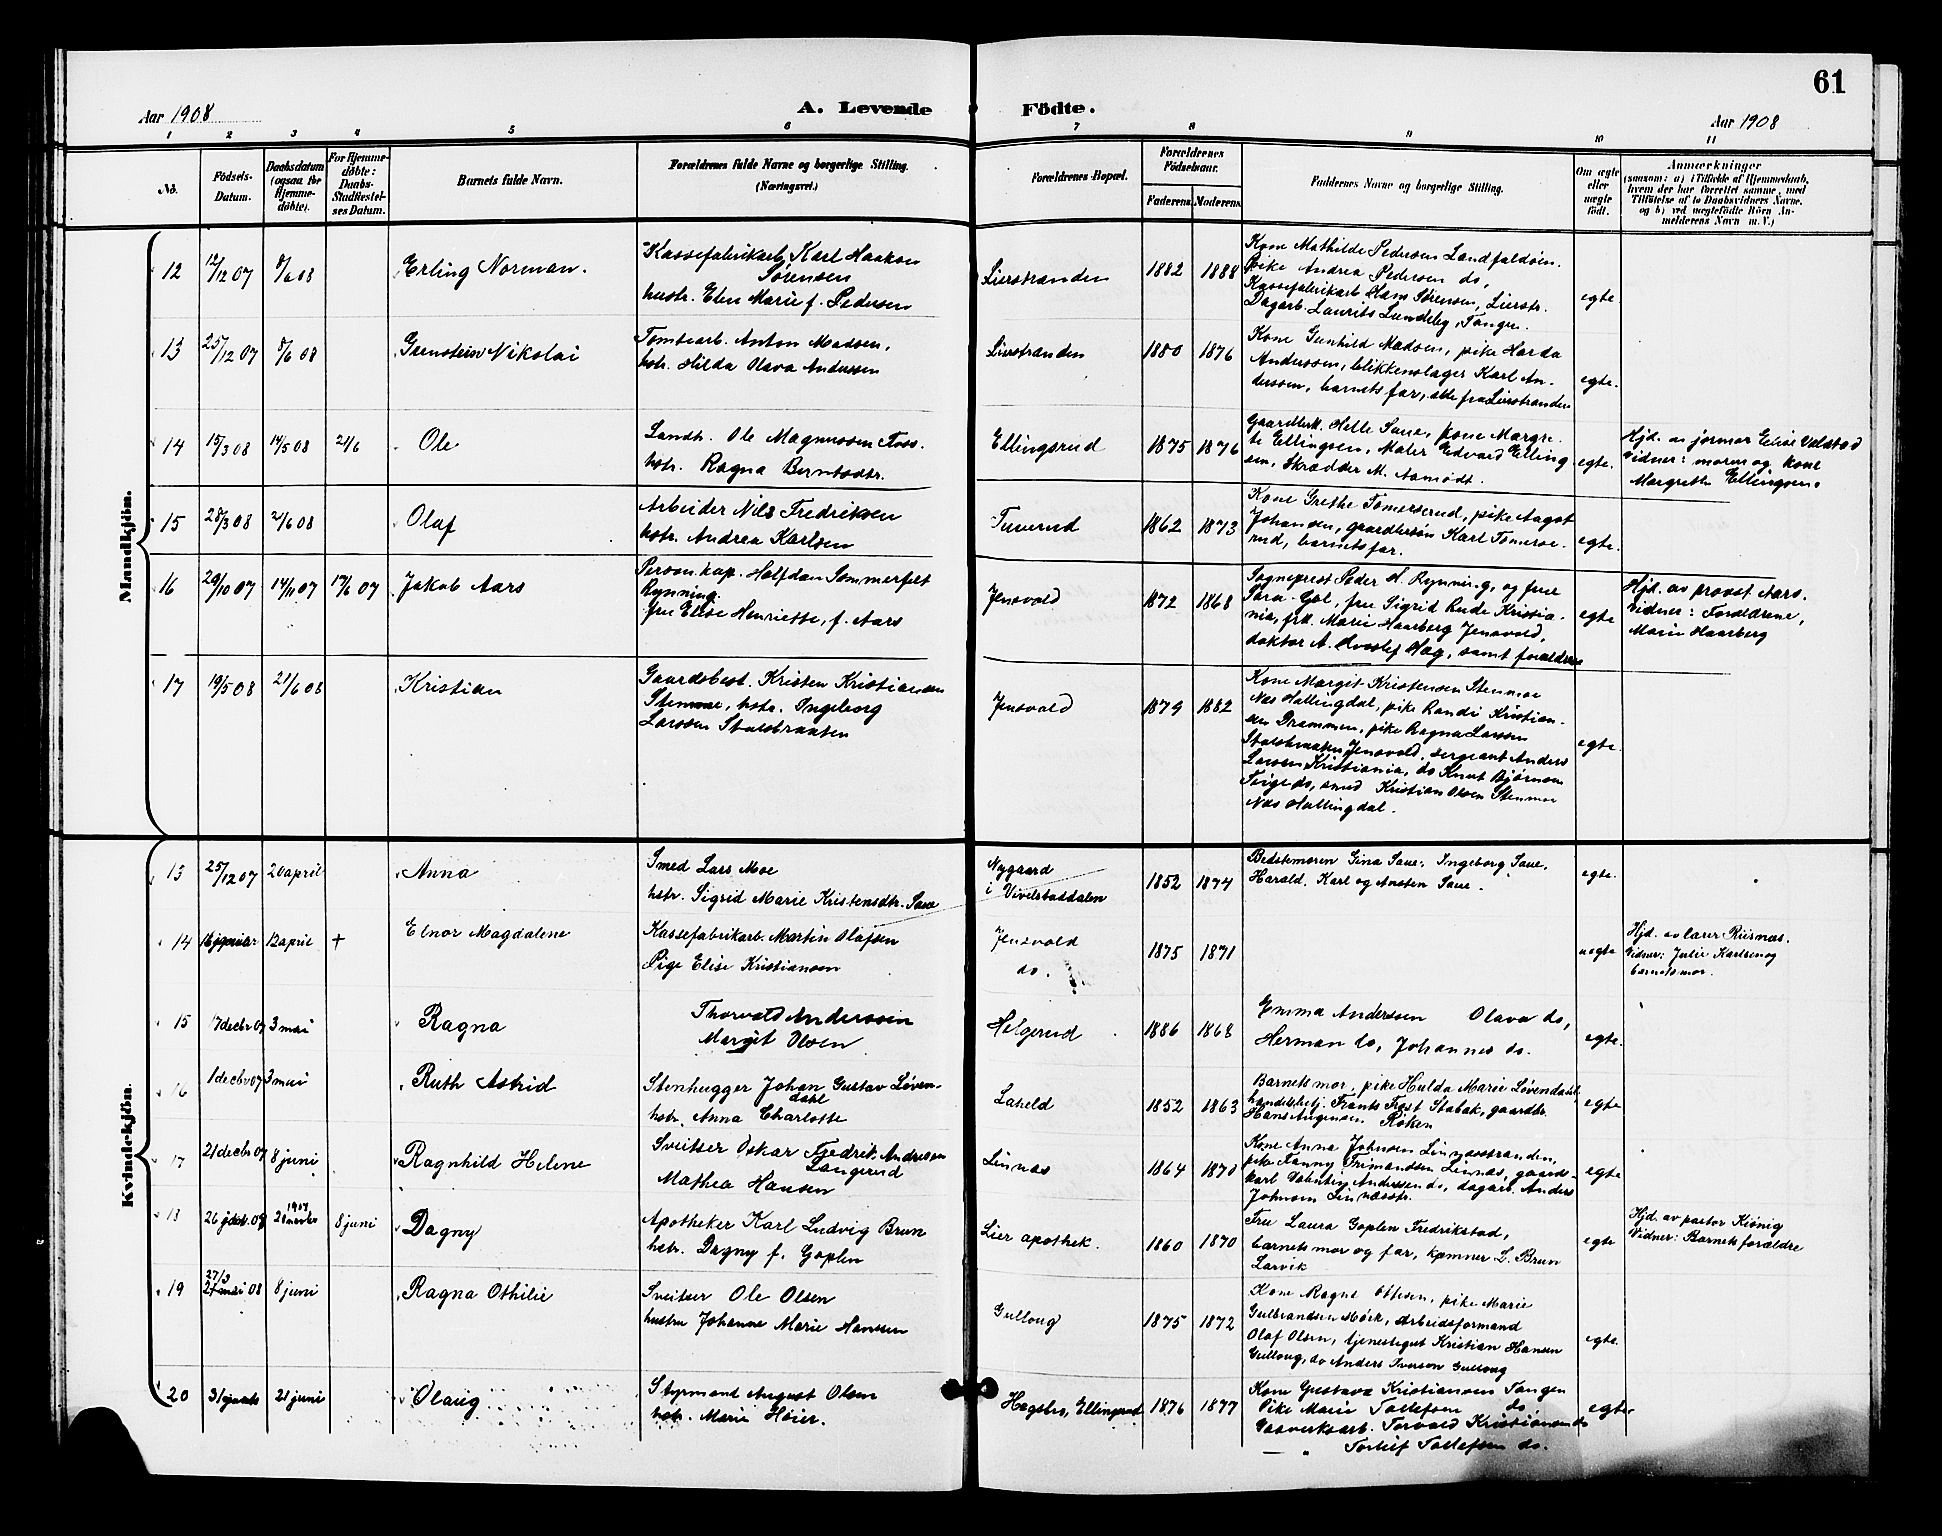 61
Aar 1908
A. Levende
Födte.
Aar 1908
1 2 3 4 5 6 7 8 9 10 11
No.
Födsels-
Datum.
Daabsdatum
(ogsaa for
Hjemme-
døbte).
For Hjemme-
døbte:
Daabs-
Stadfæstel-
ses Datum.
Barnets fulde Navn.
Forældrenes fulde Navne og borgerlige Stilling.
(Næringsvei.)
Forældrenes Bopæl.
Forældrenes
Födselsaar.
Faderens.
Moderens.
Faddernes Navne og borgerlige Stilling.
Om ægte
eller
uægte
født.
Anmærkninger
(saasom: a) i Tilfælde af Hjemmedaab,
hvem der har forrettet samme, med
Tilføielse af to Daabsvidners Navne,
og b) ved uægtefödte Börn An-
melderens Navn m. V.)
Mandkjön.
12
12/12 07
8/6 08
Erling Norman.
Kassefabrikarb. Karl Haakon
Sørensen
hustr. Elen Marie f. Pedersen
Lierstranden
1882
1888
Kone Mathilde Pedersen Landfaldöen.
pike Andrea Pedersen do,
Kassefabrikarb Hans Sørensen, Lierstr.
Dagarb. Laurits Lundeby, Tangen.
egte
13
25/12 07
8/6 08
Nikolai
Tomtearb. Anton Madsen,
hstr. Hilda Olava Anderssen
Lierstranden
1880
1876
Kone Gunhild Madsen, pike Harda
Anderssen, blikkenslager Karl An-
derssen, barnets far, alle fra Lierstranden
egte.
14
15/3 08
14/5 08
21/6
Ole
Landh. Ole Magnussen Foss.
hstr. Ragna Berntsdtr.
Ellingsrud
1875
1876
Gaardbruk. Helle Saue, kone Margre-
te Ellingsen, Maler Edvard Elling
sen, Skrædder M. Aamodt.
egte.
Hjd. av jormor Elise Valstad
Vidner: moren og kone
Margrethe Ellingsen.
15
28/3 08
21/6 08
Olaf
Arbeider Nils Fredriksen
hstr. Andrea Karlsen
Tuverud
1862
1873
Kone Grethe Tomerserud, pike Aagot
Johansen, gaardbrsön Karl Tomerse-
rud, barnets far.
egte.
16
29/10 07
14/11 07
17/6 07
Jakob Aars
Person. kap. Halfdan Sommerfelt
Rynning.
fru Elise Henriette, f. Aars
Jensvold
1872
1868
Sogneprest Peder H. Rynning, og frue
Sara Gol, frue Sigrid Rude Kristia-
nia, frk. Marie Haarberg Jensvold,
doktor A. Hæg, samt forældrene
egte
Hjd. av provst Aars.
Vidner: Forældrene,
Marie Haarberg
17
19/5 08
21/6 08
Kristian
Gaardsbest. Kristen Kristiansen
Stenmoe, hstr. Ingeborg
Larssen Stalsbraaten
Jensvold
1879
1882
Kone Margit Kristensen Stenmoe
Nes Hallingdal, pike Randi Kristian-
sen Drammen, pike Ragna Larssen
Stalsbraaten Jensvold, sergeant Anders
Larsen Kristiania, do Knut Bjørnsen
Teige do, smed Kristian Olsen Stenmoe
Nes Hallingdal.
egte.
Kvindekjön.
13
25/12 07
20 april
Anna
Smed Lars Moe
hstr. Sigrid Marie Kristensdtr. Saue
Nygaard
i Vivelstaddalen
1852
1874
Bedstemoren Gina Saue, Ingeborg Saue,
Harald, Karl og Ansten Saue.
egte.
14
18 januar
12 april
+
Elnor Magdalene
Kassefabrikarb. Martin Olafsen
Pige Elise Kristiansen
Jensvold
do.
1875
1871
uegte
Hjd. av lærer Riisnæs.
Vidner: Julie Karlsen og
barnets mor.
15
17 decbr 07
3 mai
Ragna
Thorvald Anderssen
Margit Olsen
Helgerud
1886
1868
Emma Anderssen Olava do,
Herman do, Johannes do.
egte.
16
1 decbr 07
3 mai
Ruth Astrid
Stenhugger Johan Gustav Løven-
dahl
hstr. Anna Charlotte
Laheld
1852
1863
Barnets mor, pike Hulda Marie Løvendahl,
handelsbetj. Frants Frost Stabæk, gaardbr.
Hans Røken
egte
17
21 decbr 07
8 juni
Ragnhild Helene
Sveitser Oskar Fredrik Andresen
Langerud
Mathea Hansen
Linnæs
1864
1870
Kone Anna Johnsen Linnæsstranden,
pike Fanny Linnæs, gaards-
karl Valentin Anderssen do, dagarb. Anders
Johnsen Linnæsstr.
egte
18
1907
8 juni
Dagny
Apotheker Karl Ludvig Brun
hstr. Dagny f. Goplen
Lier apothek.
1860
1870
Fru Laura Goplen Fredrikstad,
barnets mor og far, kæmner L. Brun
Larvik
egte
Hjd. av pastor Kiönig
Vidner: Barnets forældre
19
27/3
21 mai 08
8 juni
Ragna Othilie
Sveitser Ole Olsen
hustru Johanne Marie Hanssen
Gulloug
1875
1872
Kone Ragna Ottesen, pike Marie
Gulbrandsen Mörk, Arbeidsformand
Olaf Olsen, tjenestegut Kristian Hansen
Gulloug, do Anders Iverson Gulloug
egte.
20
21 juni
Olaug
Styrmand August Olsen
hstr. Marie Høier.
Hagsbro, Ellingsrud
1876
1877
Kone Gustava Kristiansen Tangen
Pike Marie Tollefsen do
Gasverksarb. Torvald Kristiansen do
— " Torleif Tollefsen do.
egte